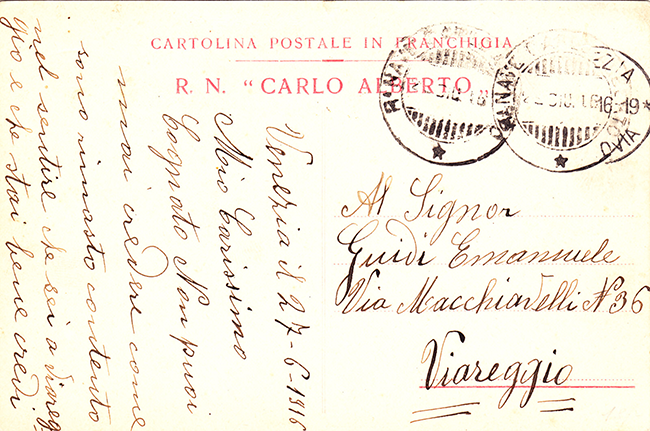 CARTOLINA POSTALE IN FRANCHIGIA
R. N. "CARLO ALBERTO
16-19
Al Signor
Guidi Emanuele
Via Macchiavelli N 36
Viareggio
Venezia il 27-6-1916
Mio Carissimo
Cognato Non puoi
mai credere come
sono rimasto contento
nel sentire che sei a Viareg
gio e che stai bene credi